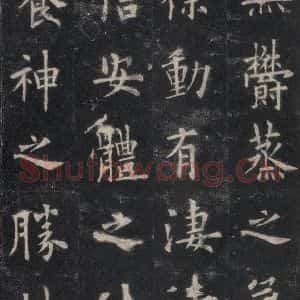 無欝蒸之
徐動有淒
信安體之
養神之勝
Shufawang.Cn